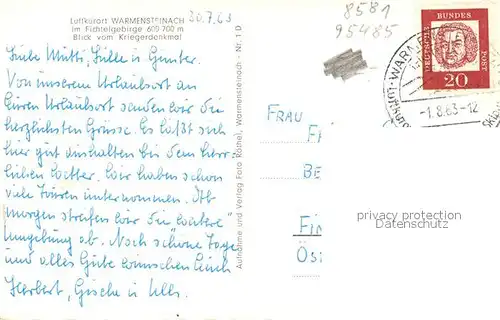 Luftkurort WARMENSTEINACH
im Fichtelgebirge 600-700 m
Blick vom Kriegerdenkmal
30.7.63
Liebe Mutti, Sille u. Günter.
Von unserem Urlaubsort an
Euren Urlaubsort senden wir die
herzlichsten Grüsse. Es läßt sich
hier gut aushalten bei dem herr-
lichen Wetter. Wir haben schon
viele Touren unternommen. Ab
morgen streifen wir die "weitere"
Umgebung ab. Noch schöne Tage
und alles Gute wünschen Euch
Herbert, Gisela u. Ulli.
Aufnahme und Verlag Foto Röthel, Warmensteinach - Nr. 1 D
8581
95485
DEUTSCHE BUNDESPOST
20
-1.8.63-12
FRAU
privacy protection
Datenschutz